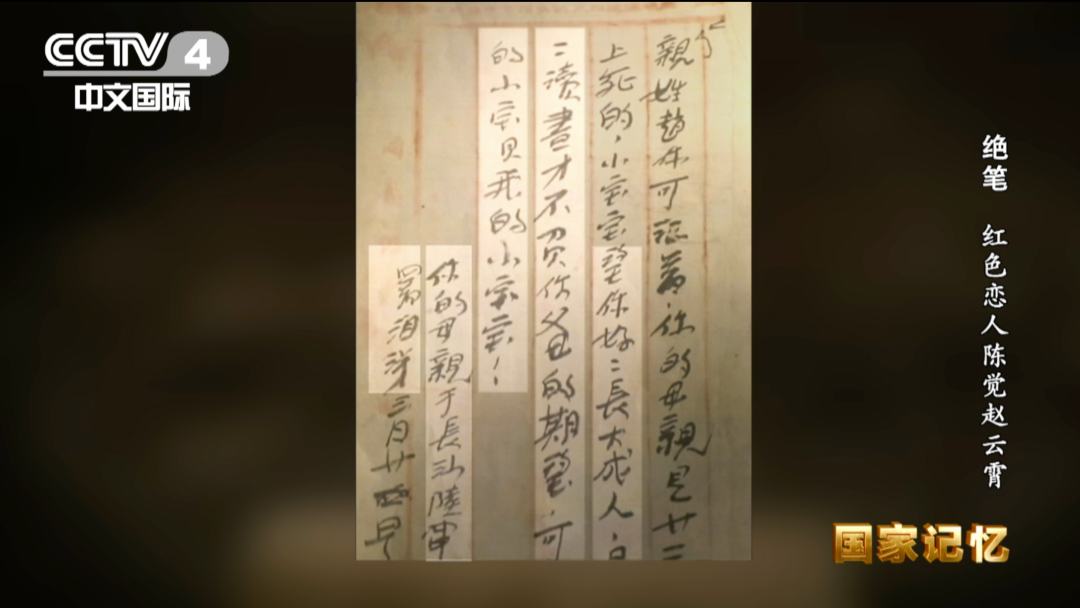 CCTV 4
中文国际
親姓趙你可記着.你的母親是廿三
上死的,小宝宝望你好=長大成人.且
=讀書才不負你父母的期望.可
的小宝貝我的小宝宝!
你的母親于長沙陸軍
署泪涕三月廿四号
绝笔 红色恋人陈觉赵云霄
国家记忆